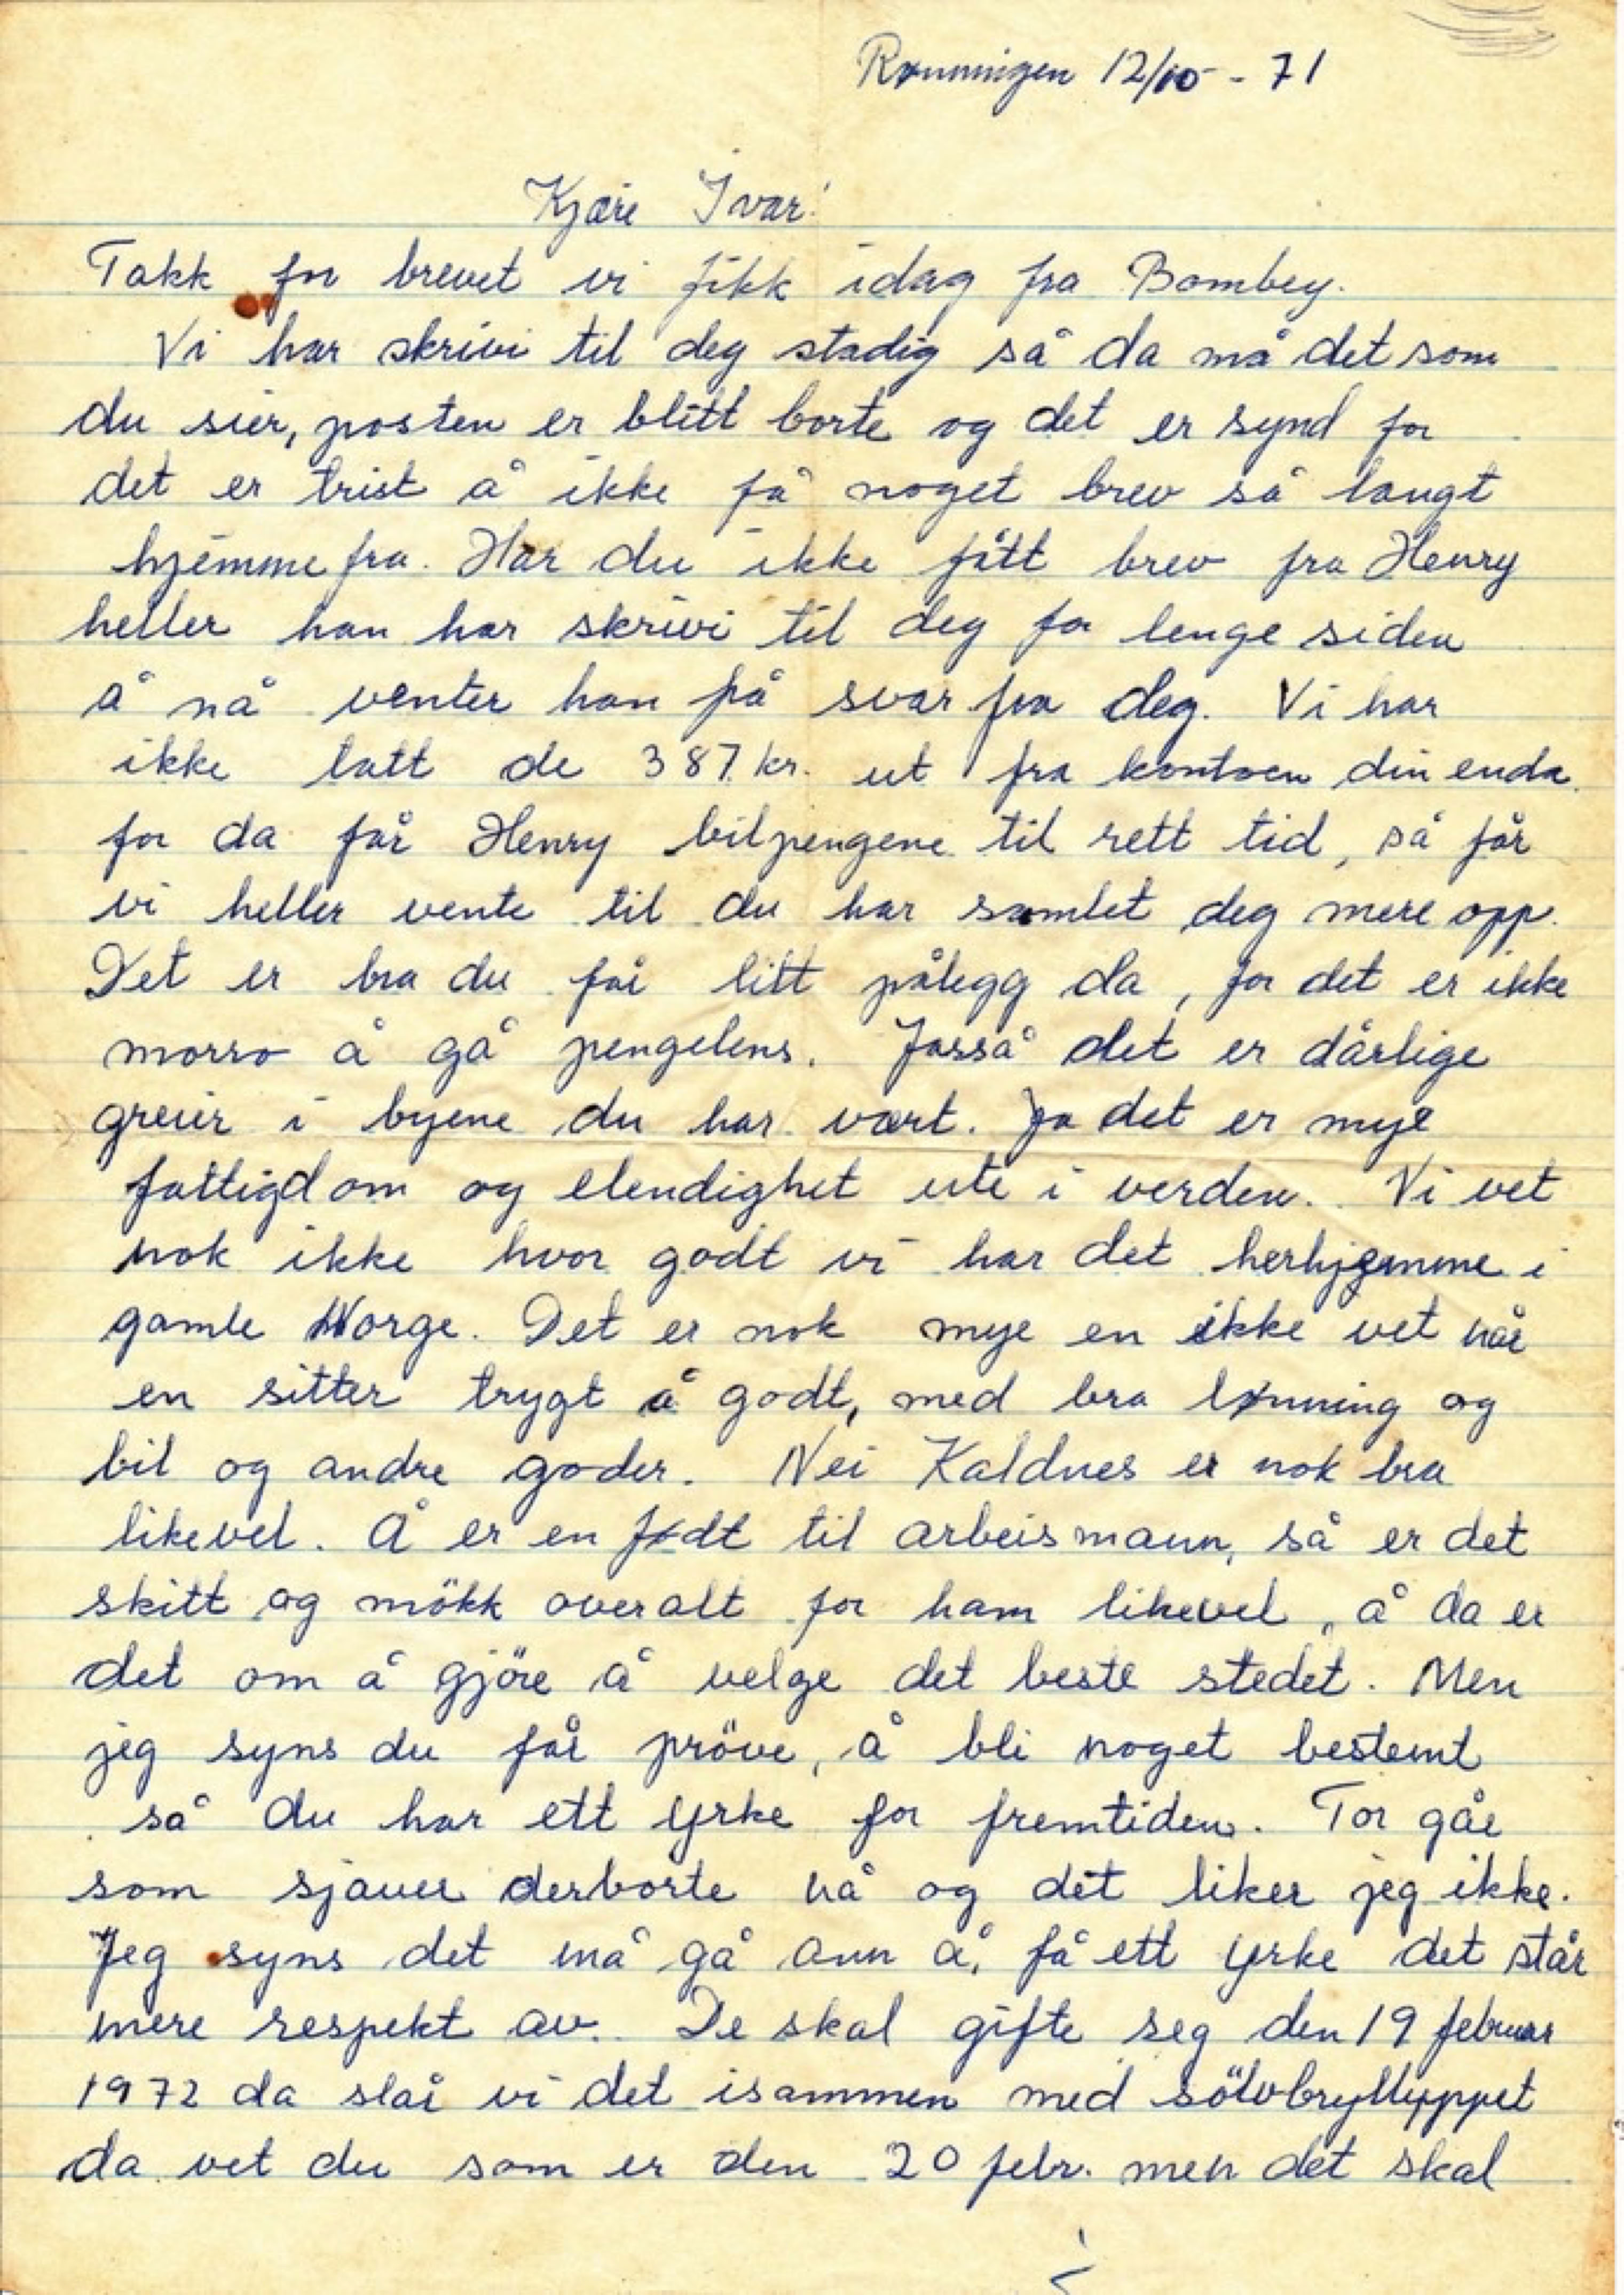 Rønningen 12/10 - 71
Kjære Ivar!
Takk for brevet vi fikk idag fra Bombey.
Vi har skrivi til deg stadig så da må det som
du sier, posten er blitt borte og det er synd for
det er trist å ikke få noget brev så langt
hjemme fra. Har du ikke fått brev fra Henry
heller han har skrivi til deg for lenge siden
å nå venter han på svar fra deg. Vi har
ikke tatt de 387 kr. ut fra kontoen din enda.
for da får Henry bilpengene til rett tid, så får
vi heller vente til du har samlet deg mere opp.
Det er bra du får litt pålegg da, for det er ikke
morro å gå pengelens. Jasså det er dårlige
greier i byene du har vært. Ja det er mye
fattigdom og elendighet ute i verden. Vi vet
nok ikke hvor godt vi har det herhjemme i
gamle Norge. Det er nok mye en ikke vet når
en sitter trygt å godt, med bra lønning og
bil og andre goder. Nei Kaldnes er nok bra
likevel. Å er en født til arbeismann, så er det
skitt og mökk overalt for ham likevel, å da er
det om å gjöre å velge det beste stedet. Men
jeg syns du får pröve, å bli noget bestemt
så du har ett yrke for fremtiden. Tor går
som sjauer derborte nå og det liker jeg ikke.
Jeg syns det må gå ann å, få ett yrke det står
mere respekt av. De skal gifte seg den 19 februar
1972 da slår vi det isammen med sölvbryllyppet
da vet du som er den 20 febr. men det skal